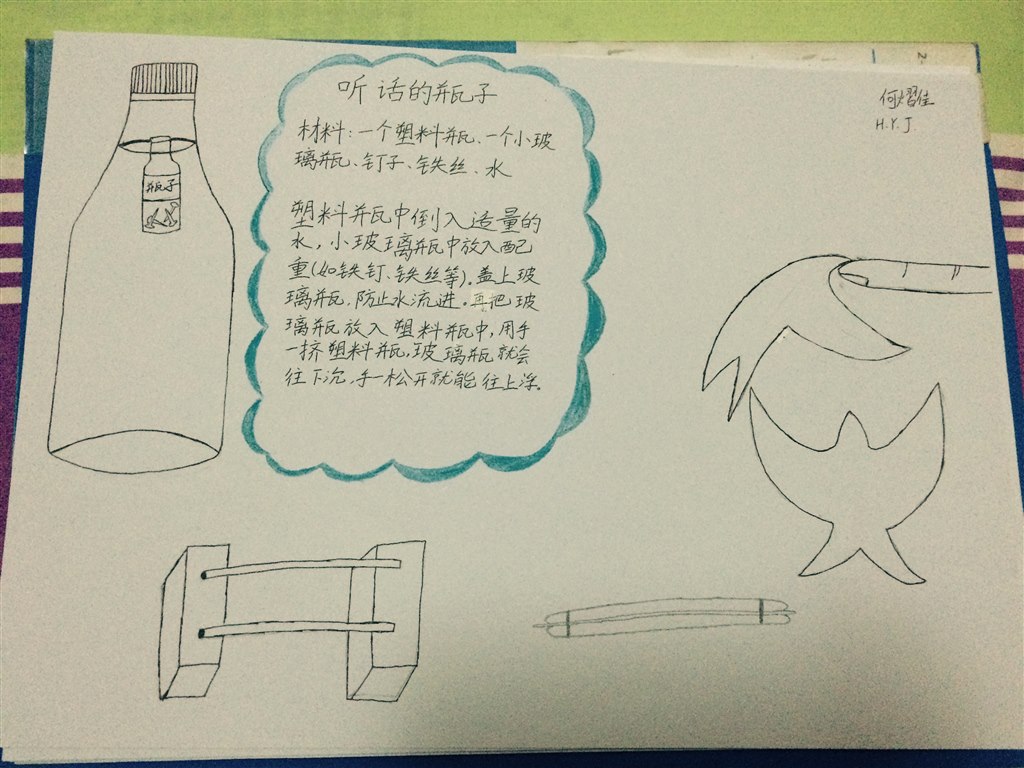 听话的瓶子
材料：一个塑料瓶、一个小玻
璃瓶、钉子、铁丝、水
塑料瓶中倒入适量的
水，小玻璃瓶中放入配
重(如铁钉、铁丝等)。盖上玻
璃瓶，防止水流进。再把玻
璃瓶放入塑料瓶中，用手
一挤塑料瓶，玻璃瓶就会
往下沉，手一松开就能往上浮。
瓶子
何熠佳
H.Y.J.